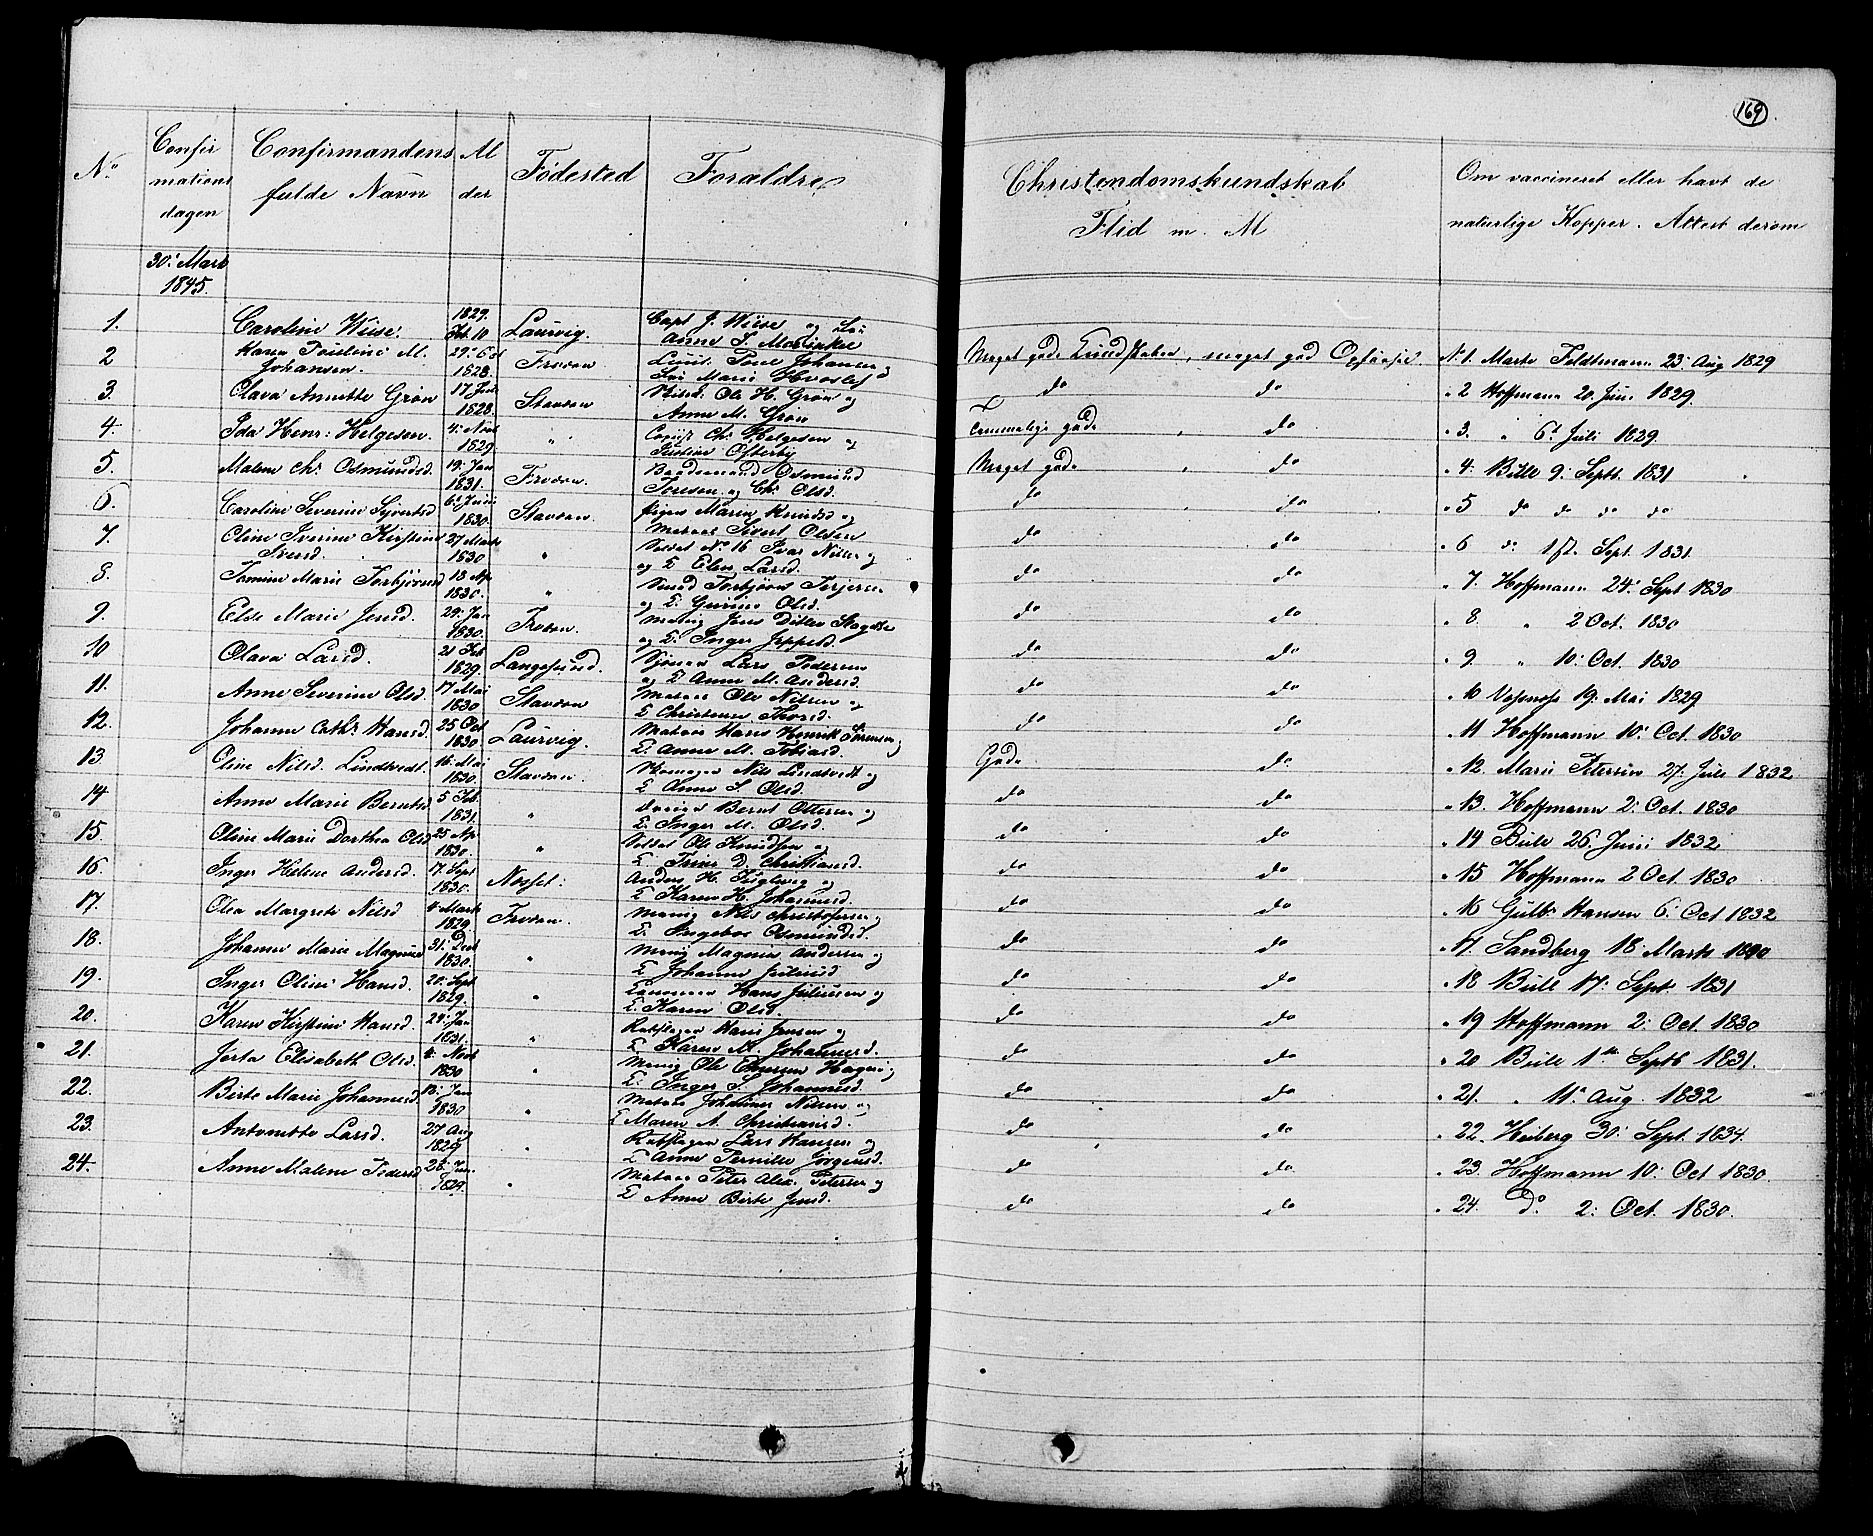 169
No Confirmationsdagen Confirmandens fulde Navn Alder Fødested Forældre Christendomskundskab Flid m. M Om vaccineret eller havt de naturlige Kopper. Attest derom
30: Mars 1845.
1. Caroline Wiise. 1829. Feb 10 Laurvig. Capt J. Wiise og
Anne S.
Meget gode Kundskaber, meget god Opførsel. No 1. Marte Feldtmann 23: Aug 1829
2 Karen Pouline M. Johansen. 29: Oct 1828. Poul Johansen
Marie Hvoslef
do do 2 Hoffmann 20. Juni 1829.
3. Olava Annette Grøn 17 1828. Stavern Ole H. Grøn og
Anne M. Grøn
Temmelig gode do 3. " 6t Juli 1829.
4. Ida Henr: Helgesen. 4: Novb 1829 " Chr Helgesen og
Justine Ofterby
Meget gode do 4: Bull 9: Septb. 1831
5. Malene Chr. Osmundsd. 19: Jan 1831. Baadsmand Osmund
Toresen og Chr. Olsd.
do do 5 do do do do
6. Caroline Severine Syvertsd 6: Juni 1830. Stavern. pigen Maren Knudsd og
Matros Sivert Olsen
do do 6 do Sept. 1831
7. Oline Iverine Kirstine Iversd. 27 Marts 1830 " Soldat No 16 Ivar Nilsen og
og E Elen Larsd.
do do 7. Hoffmann 24: Sept 1830
8. Tomine Marie Torbjørnsd 13 Ap 1830. " Torbjørn Terjesen
og E. Gurine Olsd.
do do 8 " 2 Oct. 1830
9. Else Marie Jensd. 29: Jan 1830. Menig Jens Ditlev
og E. Inger Jeppesd.
do do 9. " 10: Oct. 1830
10 Olava Larsd. 21 Feb 1829. Langesund. Lars Pedersen
og E Anne M. Andersd.
do do 10 19: Mai 1829
11. Anne Severine Olsd. 17 Mai 1830 Stavern Matros Ole Nilsen og
E Christense Thorsd.
do do 11 Hoffmann 10: Oct. 1830
12. Johanne Cath: Hansd. 25 Oct 1830. Laurvig. Matros Hans Henrik Sørensen og
E. Anne M. Tobiasd.
Gode do 12. Marie Petersen 27: Juli 1832
13. Oline Nilsd. Lindtvedt. 16: Mai 1830. Stavern. Skomager Nils Lindtvedt og
E Anne S Olsd.
do do 13. Hoffmann 2: Oct. 1830
14 Anne Marie Berntsd 5 Feb. 1831. " Bernt Ottersen og
E. Inger M. Olsd.
do do 14 Bull 26 Juni 1832
15. Oline Marie Dorthea Olsd 25 Ap 1830. " Soldat Ole Knudsen og
E. Trine D. Christiansd.
do do 15 Hoffmann 2 Oct. 1830
16. Inger Helene Andersd. 17: Sept 1830. Næsset: Anders H. Fuglevig og
E Karen H. Johannesd.
do do 16 Gulb: Hansen 6: Oct 1832
17. Olea Margrete Nilsd 4 Marts 1829. Menig Nils Christofersen og
E. Ingebor Osmundsd.
do do 17 Sandberg 18 Marts
18. Johanne Marie Magnusd 31: Dect 1830. " Menig Magnus Andersen og
E Johanne Juliusd
do do 18 Bull 17: Sept. 1831
19. Inger Oline Hansd. 20: Sept 1829. " Hans Juliusen og
E. Karen Olsd.
do do 19 Hoffmann 2: Oct. 1830
20. Karen Kirstine Hansd. 24: Jan 1831. " Rebslager Hans Jensen og
E Karen M. Johannesd.
do do 20 Bull 1ste Septb 1831.
21. Elisabeth Olsd. 4: Novb 1830 " Menig Ole
E. Inger S. Johannesd.
do do 21. " 11: Aug. 1832
22. Birte Marie Johannesd 13: Jan 1830 " Matros Johannes Nilsen og
E Maren A. Christiansd.
do do 22. Heiberg 30: Sept. 1834.
23. Antonette Larsd. 27 Aug 1829 " Rebslager Lars Hansen og
E Anne Pernille Jørgensd.
do do 23. Hoffmann 10: Oct 1830.
24. Anne Malene Pedersd 28: 1829. " Matros Peter Alex. Petersen og
E Anne Birte Jensd.
do do 24. do 2: Oct. 1830.